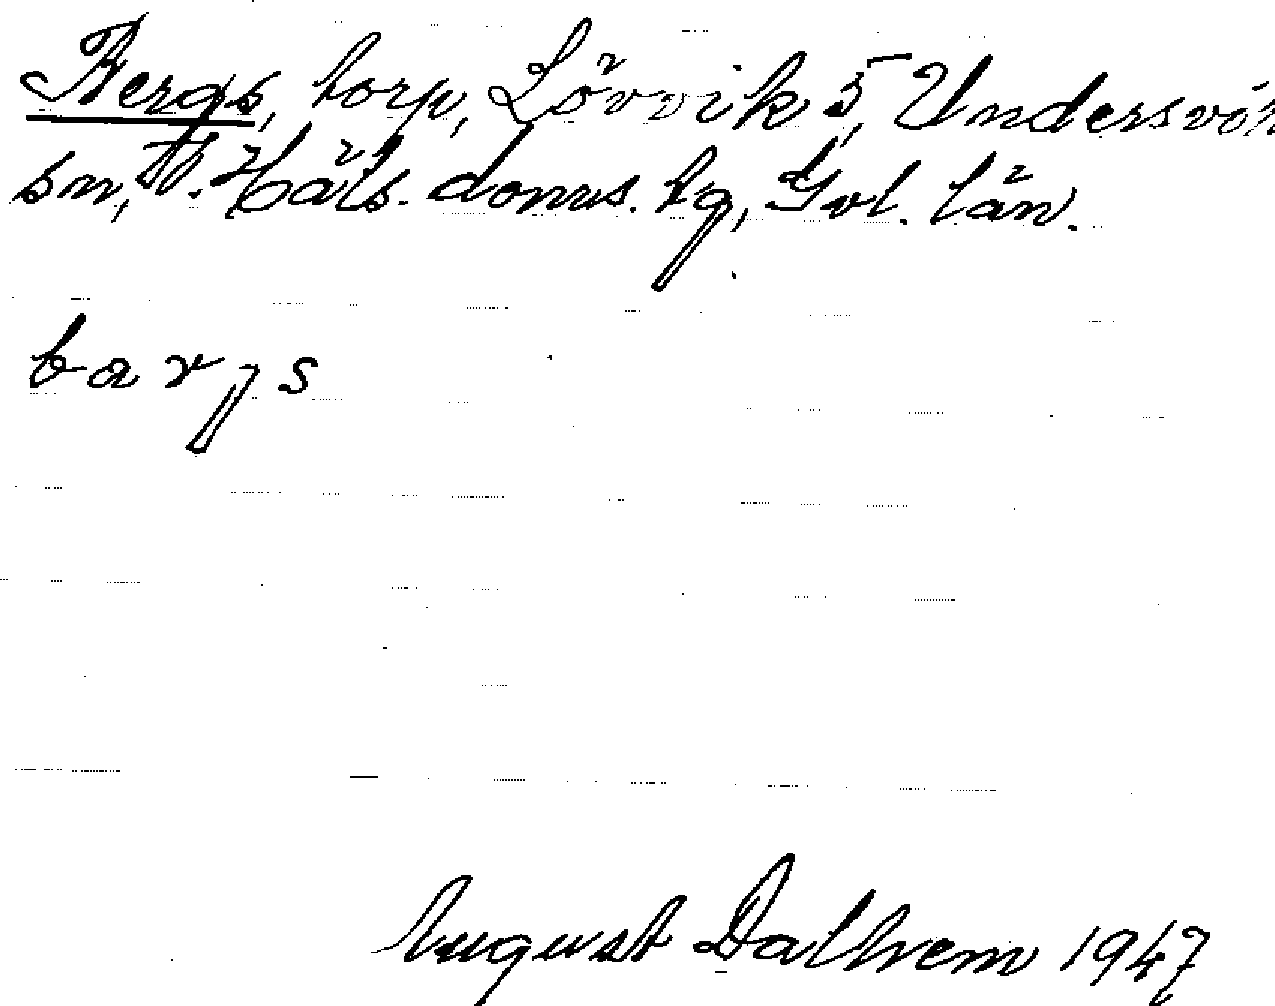 Bergs, torp, Lövvik 5, Undersvik
sn, V. Häls. doms. hg, Gvl. län.
barjs
August Dalhem 1947